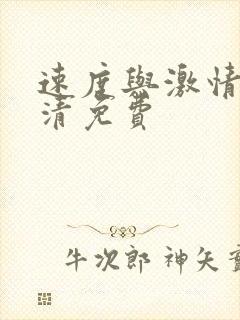 速度與激情
清免費
牛次郎 神矢